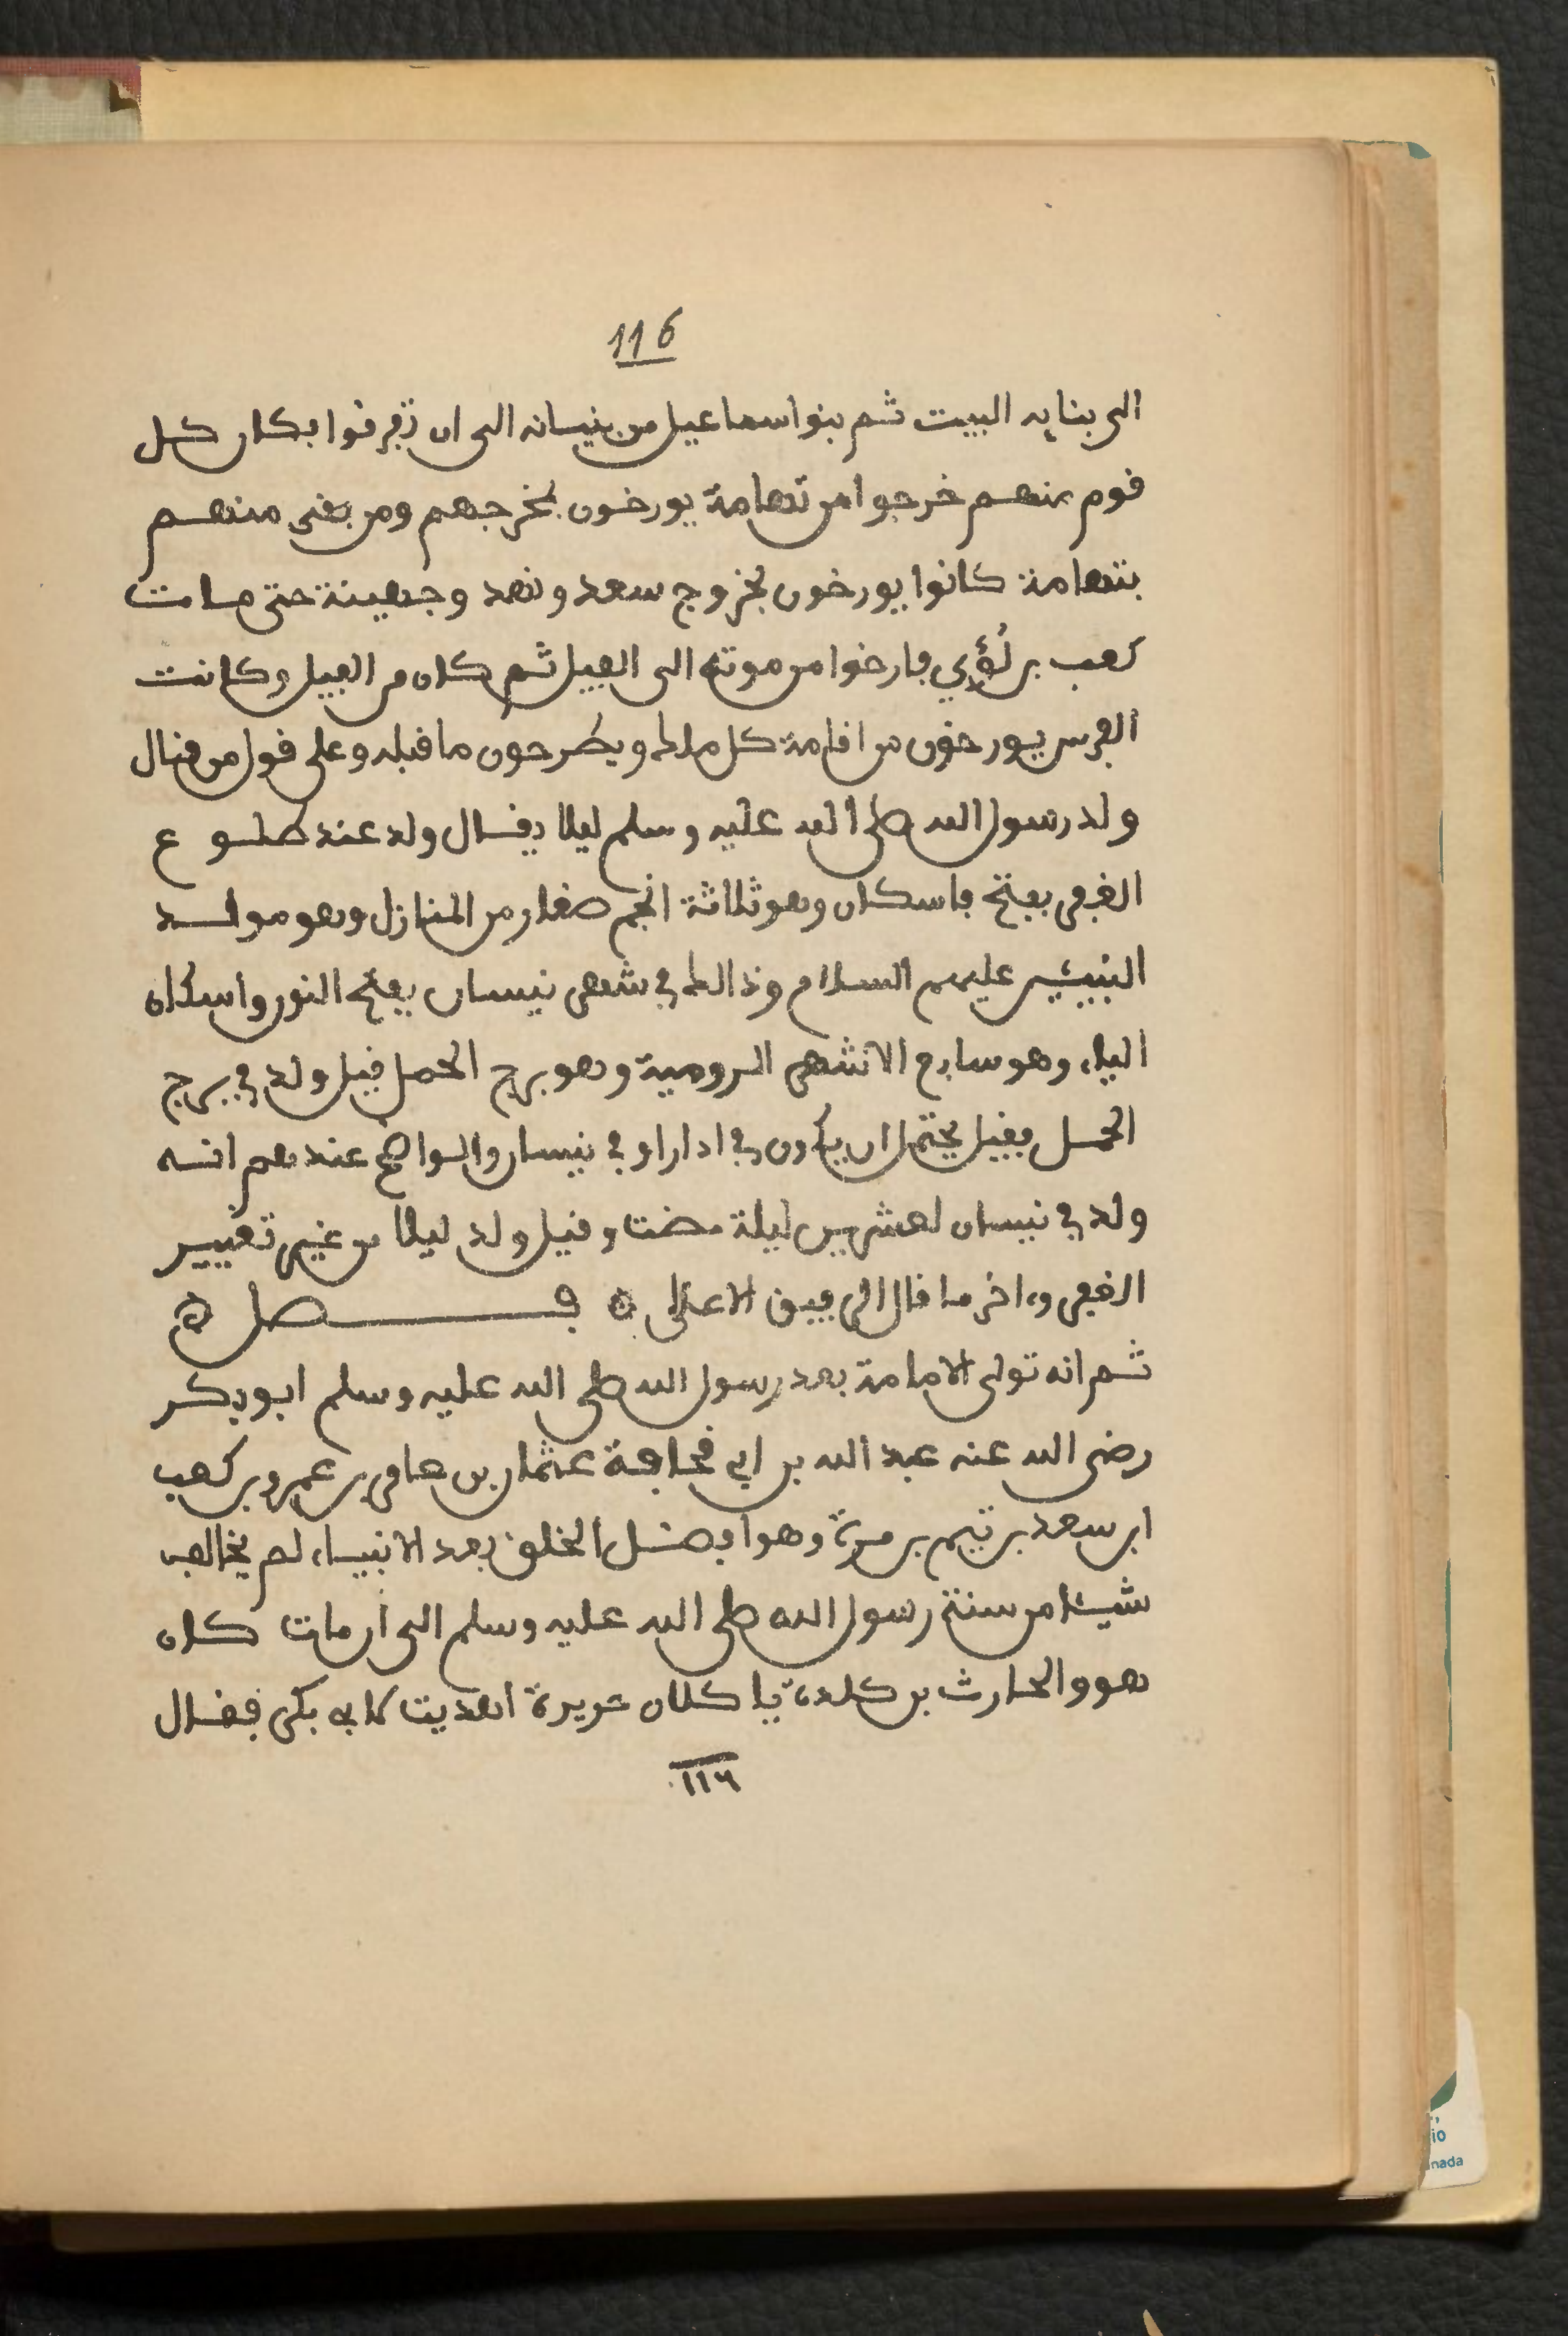 116
الى بنايه البيت ثم بنوا اسماعيل من بنيسانه الى ان تفرقوا فكان كل
قوم منهم خرجوا من تهامة يورخون بمخرجهم ومن بقى منهم
بتهامة كانوا يورخون بخروج سعد ونهد وجهينة حتى مات
كعب بن لُؤي فارخوا من موته الى الفيل ثم كان من الفيل وكانت
الفرس يورخون من اقامة كل ملك ويطرحون ما قبله وعلى قول من قال
ولد رسول الله صلى الله عليه وسلم ليلا يقال ولد عند طلوع
الغفر بفتح فاسكان وهو ثلاثة انجم صغار من المنازل وهو مولد
النبيئين عليهم السلام وذالك في شهر نيسان بفتح النون واسكان
الياء وهو سابع الاشهر الرومية وهو برج الحمل قيل ولد في برج
الحمل فقيل يحتمل ان يكون في اذار او في نيسان والواضح عندهم انه
ولد في نيسان لعشرين ليلة مضت وقيل ولد ليلا من غير تعيين
الغفر وءاخر ما قال الرفيق الاعلى ۞ فصل ۞
ثم انه تولى الامامة بعد رسول الله صلى الله عليه وسلم ابو بكر
رضى الله عنه عبد الله بن ابي قحافة عثمان بن عامر بن عمرو بن كعب
ابن سعد بن تيم بن مرة وهو افضل الخلق بعد الانبياء لم يخالف
شيئا من سنة رسول الله صلى الله عليه وسلم الى ان مات كان
هو والحارث بن كلدة ياكلان حريرة اهديت لابى بكر فقال
١١٦